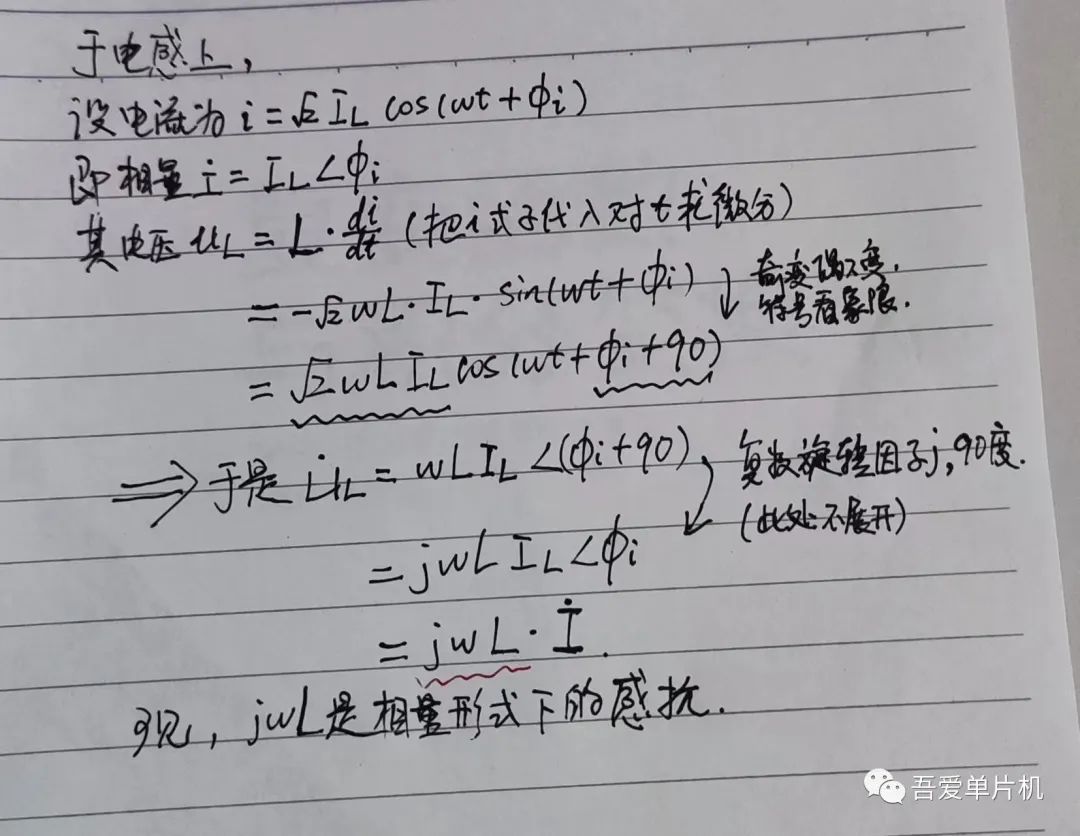 于电感上,
设电流为 i = √2 I_L cos(wt + ϕi)
即相量 İ = I_L ∠ϕi
其电压 u_L = L · di/dt (把i式子代入对t求微分)
= -√2 wL · I_L · sin(wt + ϕi) 奇变偶不变,
符号看象限.
= √2 wL I_L cos(wt + ϕi + 90)
⟹ 于是 U̇_L = wL I_L ∠(ϕi + 90) 复数旋转因子j, 90度.
(此处不展开)
= jwL I_L ∠ϕi
= jwL · İ.
可见, jwL是相量形式下的感抗.
吾爱单片机